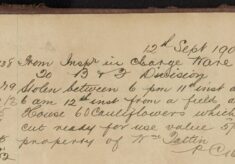 12th Sept 190
38 From Inspr in Charge Ware
To B & D Division
Stolen between 6 pm 11th inst a
6 am 12th inst from a field a
House 60 Cauliflowers which
cut ready for use value
property of Wm